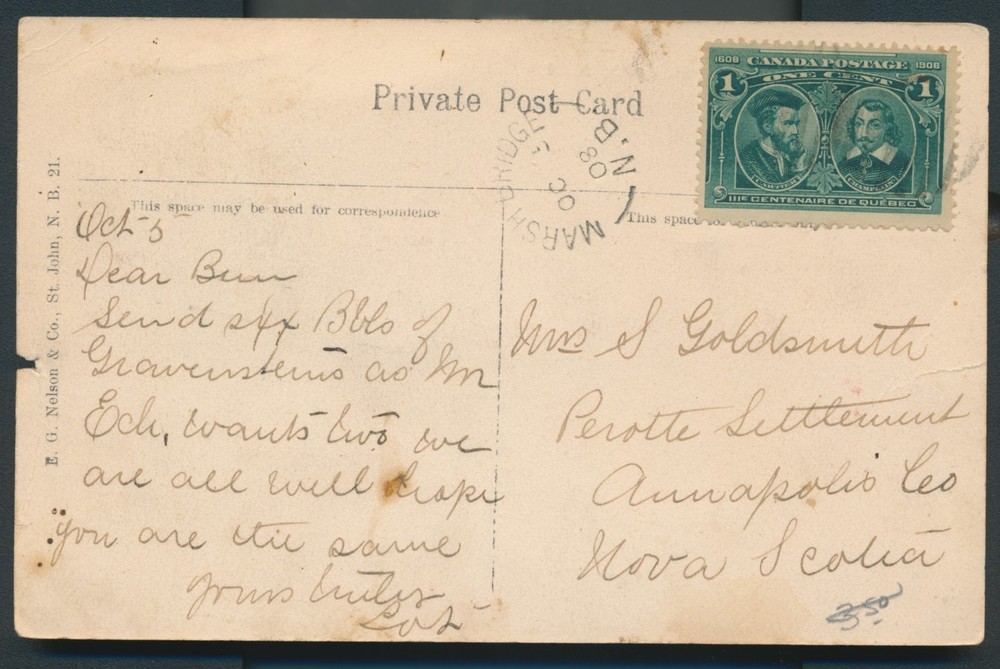 Private Post Card
1608 CANADA POSTAGE 1908
1 ONE CENT 1
CARTIER CHAMPLAIN
IIIE CENTENAIRE DE QUÉBEC
MARSH BRIDGE N.B.
OC 5
08
This space may be used for correspondence
This space for
E. G. Nelson & Co., St. John, N. B. 21.
Oct 5
Dear Bun
Send six Bbls of
Gravensteins as Mr
Ed, wants two we
are all well hope
you are the same
yours truly
Mrs S Goldsmith
Perotte Settlement
Annapolis Co
Nova Scotia
3.50